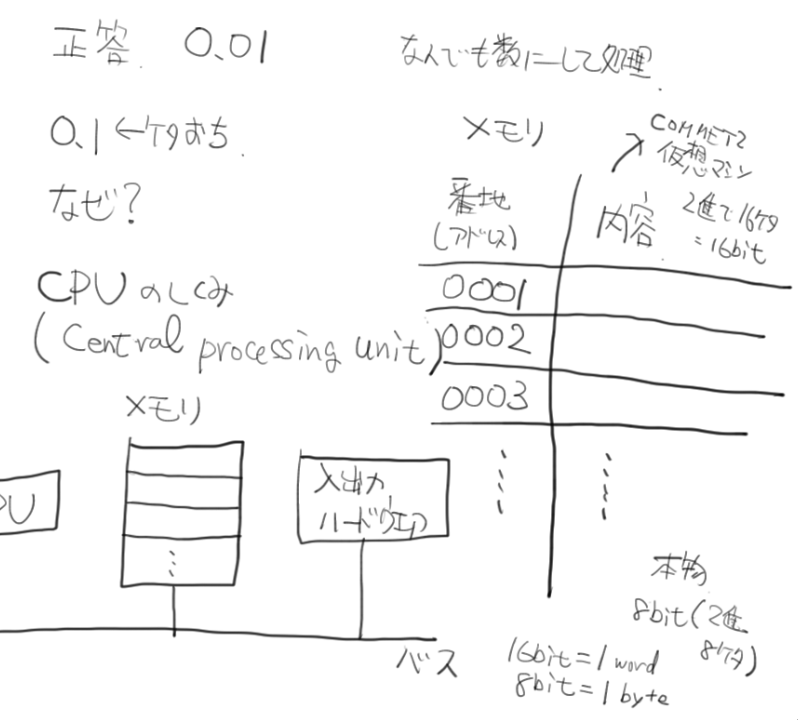 正答 0.01
0.1 ←ケタおち
なぜ?
CPUのしくみ
(Central processing unit)
メモリ
PU
⋮
入出力
ハードウェア
バス
なんでも数にして処理
メモリ
COMMET2
仮想マシン
番地
(アドレス)
内容
2進で16ケタ
=16bit
0001
0002
0003
⋮ ⋮
本物
8bit(2進
8ケタ)
16bit=1 word
8bit=1 byte